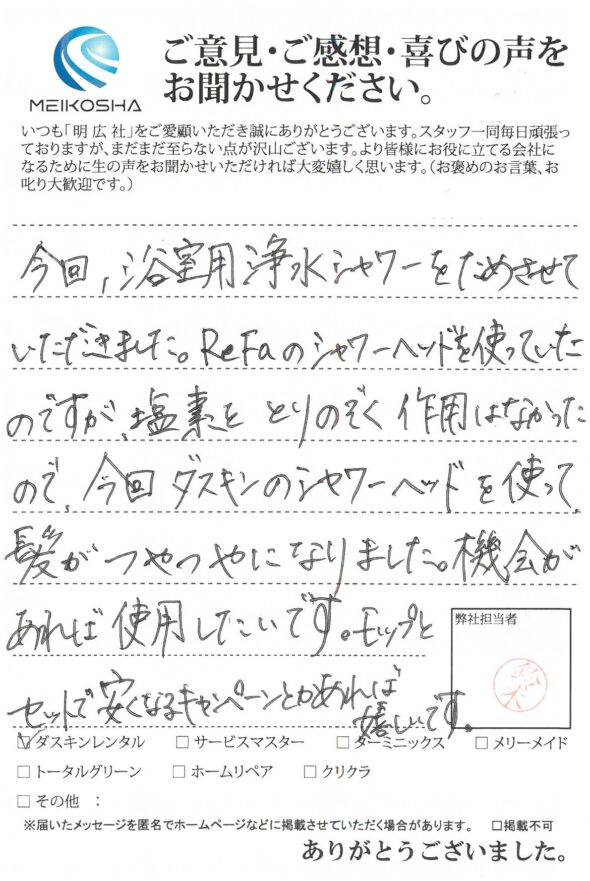 MEIKOSHA
ご意見・ご感想・喜びの声を
お聞かせください。
いつも「明広社」をご愛顧いただき誠にありがとうございます。スタッフ一同毎日頑張っ
ておりますが、まだまだ至らない点が沢山ございます。より皆様にお役に立てる会社に
なるために生の声をお聞かせいただければ大変嬉しく思います。（お褒めのお言葉、お
叱り大歓迎です。）
今回、浴室用浄水シャワーをためさせて
いただきました。ReFaのシャワーヘッドを使っていた
のですが、塩素を とりのぞく 作用はなかった
ので、今回ダスキンのシャワーヘッドを使って、
髪がつやつやになりました。機会が
あれば使用したいです。モップと
セットで安くなるキャンペーンとかあれば
嬉しいです。
弊社担当者
☑ダスキンレンタル □サービスマスター □ターミニックス □メリーメイド
□トータルグリーン □ホームリペア □クリクラ
□その他 ：
※届いたメッセージを匿名でホームページなどに掲載させていただく場合があります。 □掲載不可
ありがとうございました。